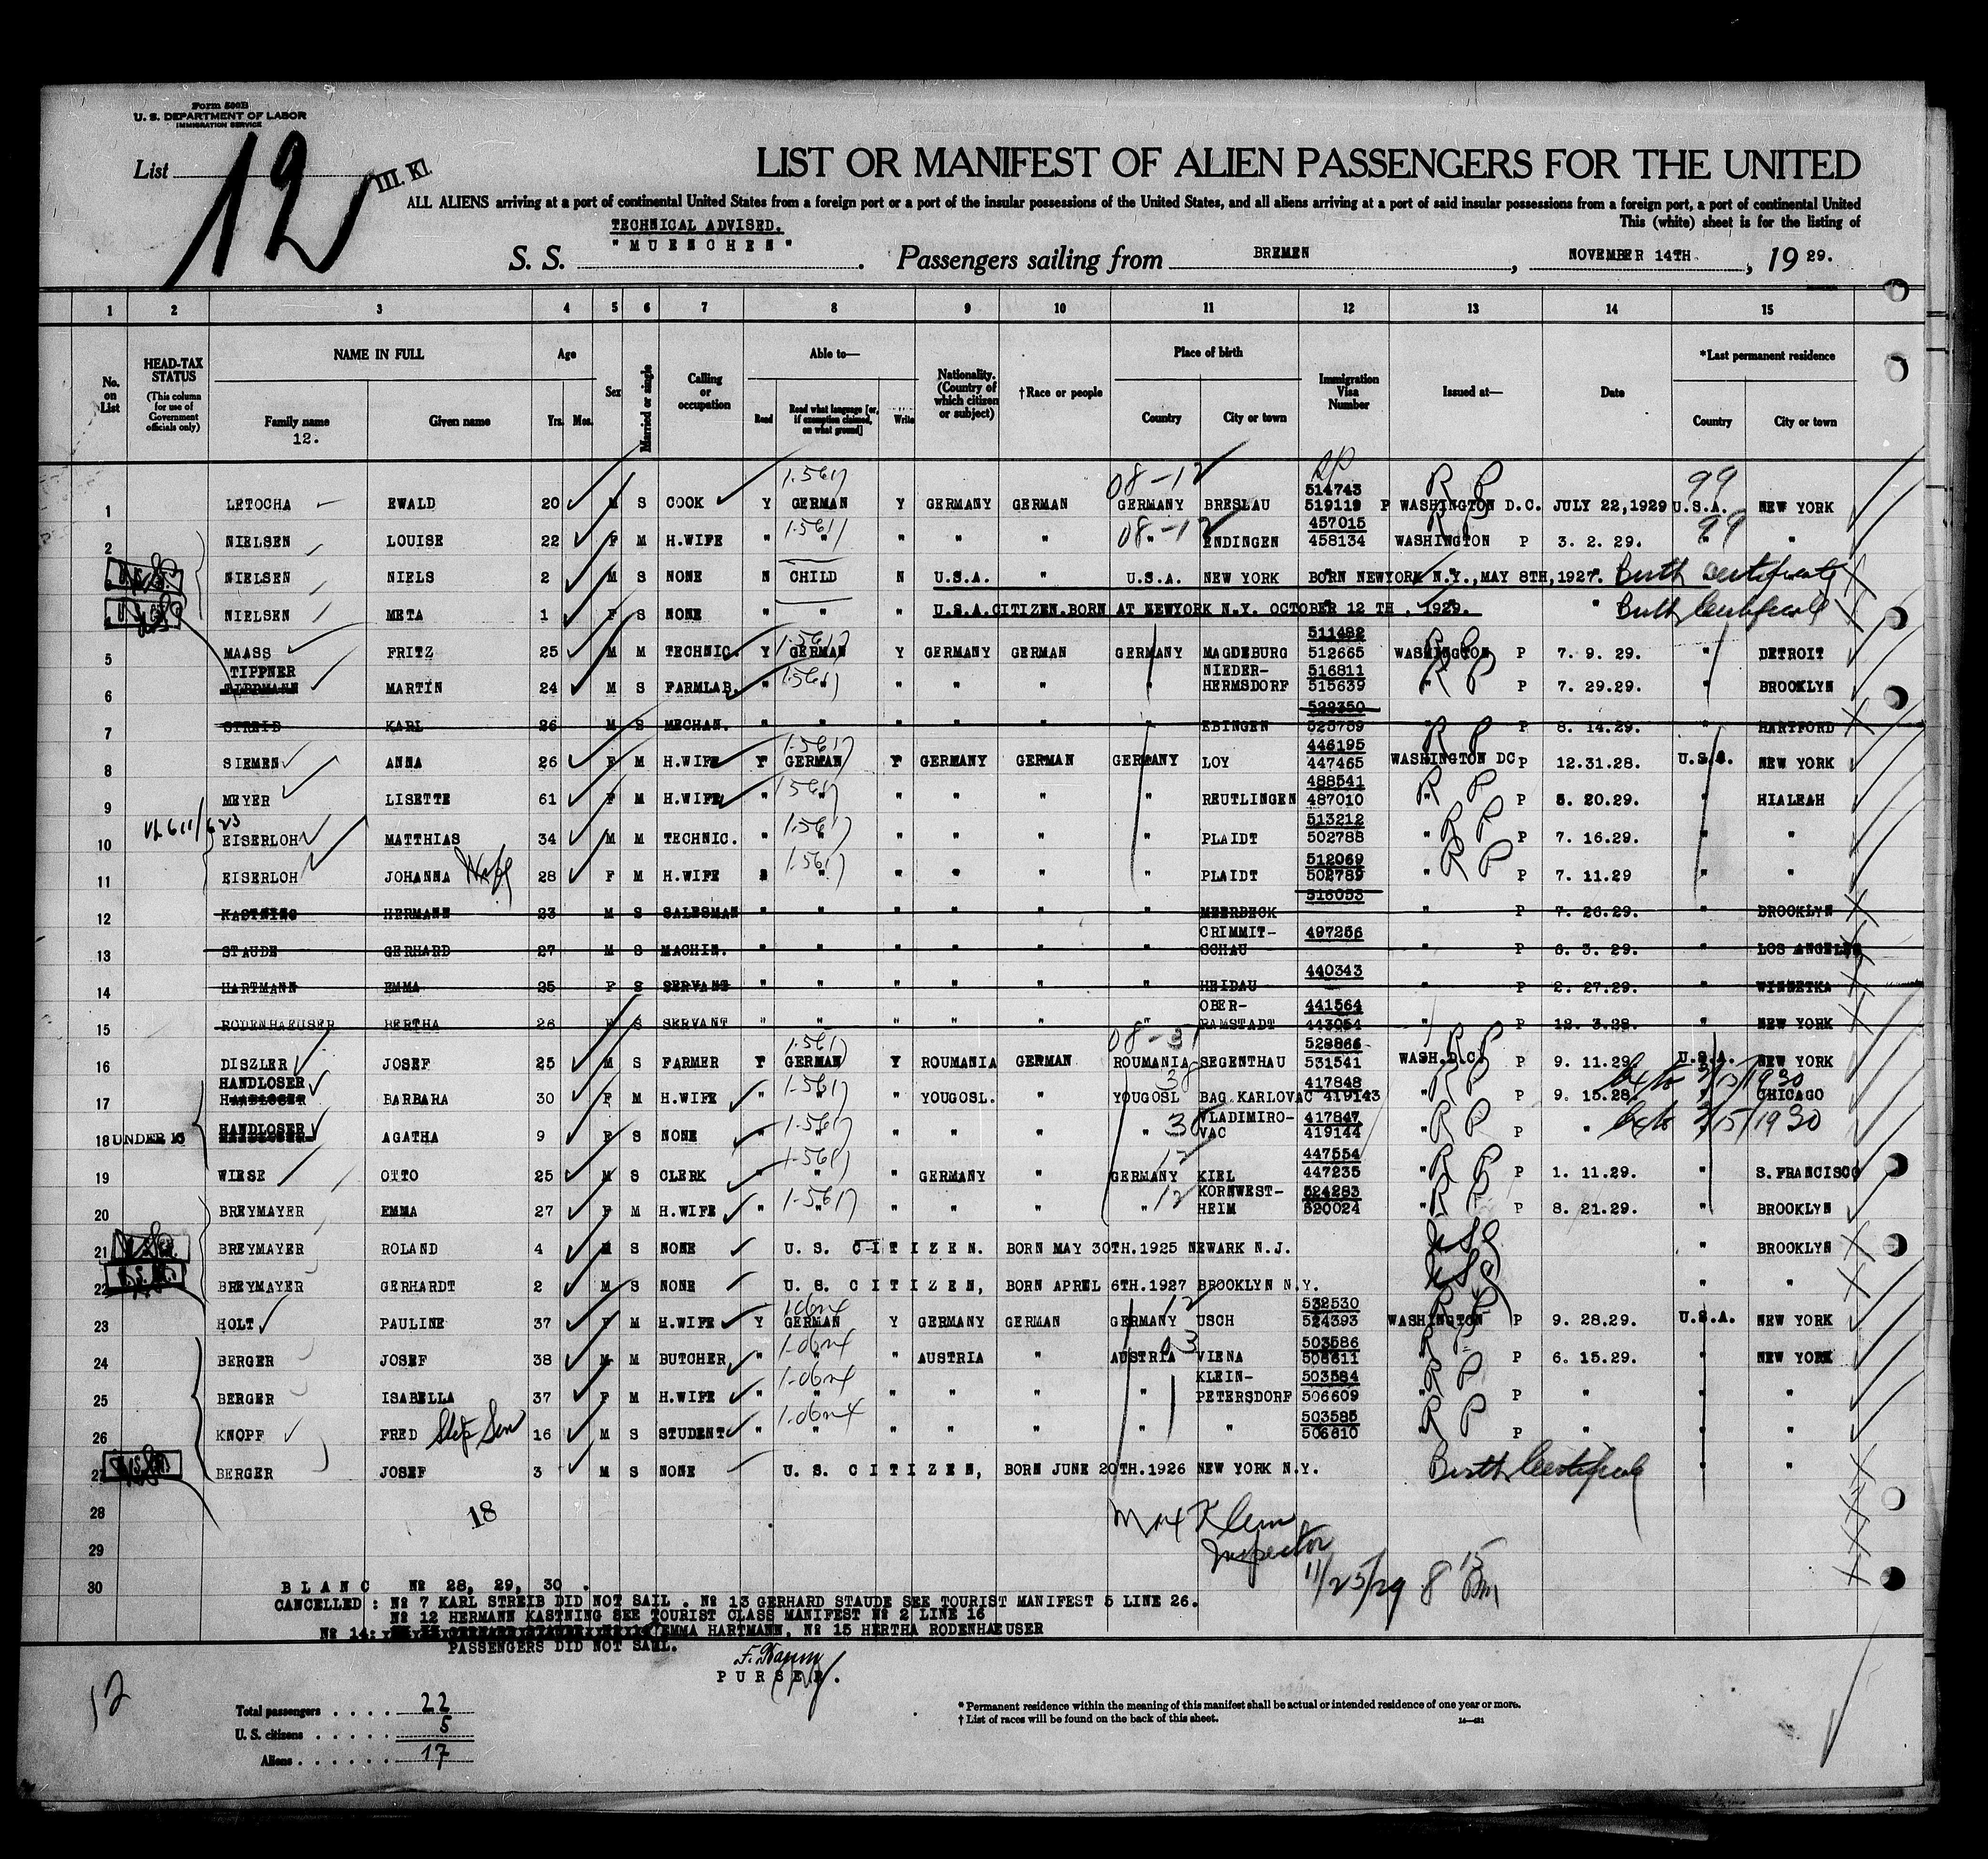 Form 500B
U. S. DEPARTMENT OF LABOR
IMMIGRATION SERVICE
List 12 III. Kl.
LIST OR MANIFEST OF ALIEN PASSENGERS FOR THE UNITED
ALL ALIENS arriving at a port of continental United States from a foreign port or a port of the insular possessions of the United States, and all aliens arriving at a port of said insular possessions from a foreign port, a port of continental United
This (white) sheet is for the listing of
TECHNICAL ADVISED.
S. S. "MUENCHEN". Passengers sailing from BREMEN, NOVEMBER 14TH, 1929.
1 2 3 4 5 6 7 8 9 10 11 12 13 14 15
No. on List
HEAD-TAX STATUS (This column for use of Government officials only)
NAME IN FULL Family name 12. Given name
Age Yrs. Mos.
Sex
Married or single
Calling or occupation
Able to— Read Read what language [or, if exemption claimed, on what ground] Write
Nationality. (Country of which citizen or subject)
†Race or people
Place of birth Country City or town
Immigration Visa Number
Issued at—
Date
*Last permanent residence Country City or town
1 LETOCHA EWALD 20 M S COOK Y GERMAN Y GERMANY GERMAN GERMANY BRESLAU 514743 519119 P WASHINGTON D.C. JULY 22,1929 U.S.A. NEW YORK
2 NIELSEN LOUISE 22 F M H.WIFE " " " " " " ENDINGEN 457015 458134 WASHINGTON P 3. 2. 29. " "
NIELSEN NIELS 2 M S NONE N CHILD N U.S.A. " U.S.A. NEW YORK BORN NEWYORK N.Y.,MAY 8TH,1927. Birth Certificate
NIELSEN META 1 F S NONE " " " U.S.A.CITIZEN.BORN AT NEWYORK N.Y. OCTOBER 12 TH . 1929. " Birth Certificate
5 MAASS FRITZ 25 M M TECHNIC. Y GERMAN Y GERMANY GERMAN GERMANY MAGDEBURG 511482 512665 WASHINGTON P 7. 9. 29. " DETROIT
6 TIPPNER MARTIN 24 M S FARMLAB. " " " " " " NIEDER-HERMSDORF 516811 515639 " P 7. 29.29. " BROOKLYN
7 STREIB KARL 26 M S MECHAN. " " " " " " EBINGEN 528350 525759 " P 8. 14.29. " HARTFORD
8 SIEMEN ANNA 26 F M H.WIFE Y GERMAN Y GERMANY GERMAN GERMANY LOY 446195 447465 WASHINGTON DC P 12.31.28. U.S.A. NEW YORK
9 MEYER LISETTE 61 F M H.WIFE " " " " " " REUTLINGEN 488541 487010 " P 5. 20.29. " HIALEAH
10 EISERLOH MATTHIAS 34 M M TECHNIC. " " " " " " PLAIDT 513212 502788 " P 7. 16.29. " "
11 EISERLOH JOHANNA Wife 28 F M H.WIFE " " " " " " PLAIDT 512069 502789 " P 7. 11.29 " "
12 KASTNING HERMANN 23 M S SALESMAN " " " " " " MEERBECK 516053 " P 7. 26.29. " BROOKLYN
13 STAUDE GERHARD 27 M S MACHIN. " " " " " " CRIMMIT-SCHAU 497256 " P 6. 3. 29. " LOS ANGELES
14 HARTMANN EMMA 25 F S SERVANT " " " " " " HEIDAU 440343 " P 2. 27.29. " WINNETKA
15 RODENHAEUSER HERTHA 26 F S SERVANT " " " " " " OBER-RAMSTADT 441564 443054 " P 12. 3.28. " NEW YORK
16 DISZLER JOSEF 25 M S FARMER Y GERMAN Y ROUMANIA GERMAN ROUMANIA SEGENTHAU 528866 531541 WASH.D.C. P 9. 11.29 U.S.A. NEW YORK
17 HANDLOSER BARBARA 30 F M H.WIFE " " " YOUGOSL. " YOUGOSL BAG.KARLOVAC 417848 419143 " P 9. 15.28. " CHICAGO
18 UNDER 16 HANDLOSER AGATHA 9 F S NONE " " " " " " VLADIMIRO-VAC 417847 419144 " P " "
19 WIESE OTTO 25 M S CLERK " " " GERMANY " GERMANY KIEL 447554 447235 " P 1. 11.29. " S.FRANCISCO
20 BREYMAYER EMMA 27 F M H.WIFE " " " " " " KORNWEST-HEIM 524283 520024 " P 8. 21.29. " BROOKLYN
21 BREYMAYER ROLAND 4 M S NONE U. S. CITIZEN. BORN MAY 30TH.1925 NEWARK N.J. USC " BROOKLYN
22 BREYMAYER GERHARDT 2 M S NONE U. S. CITIZEN, BORN APREL 6TH.1927 BROOKLYN N.Y. USC " "
23 HOLT PAULINE 37 F M H.WIFE Y GERMAN Y GERMANY GERMAN GERMANY USCH 532530 524393 WASHINGTON P 9. 28.29. U.S.A. NEW YORK
24 BERGER JOSEF 38 M M BUTCHER " " " AUSTRIA " AUSTRIA VIENA 503586 506611 " P 6. 15.29. " NEW YORK
25 BERGER ISABELLA 37 F M H.WIFE " " " " " " KLEIN-PETERSDORF 503584 506609 " P " " "
26 KNOPF FRED Step Son 16 M S STUDENT " " " " " " " 503585 506610 " P " " "
27 BERGER JOSEF 3 M S NONE U. S. CITIZEN, BORN JUNE 20TH.1926 NEW YORK N.Y. Birth Certificate " "
28 18
29 Max Klein Inspector
30 11/25/29 8 15 Pm
BLANC № 28, 29, 30 .
CANCELLED : № 7 KARL STREIB DID NOT SAIL . № 13 GERHARD STAUDE SEE TOURIST MANIFEST 5 LINE 26.
№ 12 HERMANN KASTNING SEE TOURIST CLASS MANIFEST № 2 LINE 16
№ 14: EMMA HARTMANN, № 15 HERTHA RODENHAEUSER
PASSENGERS DID NOT SAIL.
PURSER.
12
Total passengers . . . . 22
U. S. citizens . . . . . 5
Aliens . . . . . . 17
* Permanent residence within the meaning of this manifest shall be actual or intended residence of one year or more.
† List of races will be found on the back of this sheet.